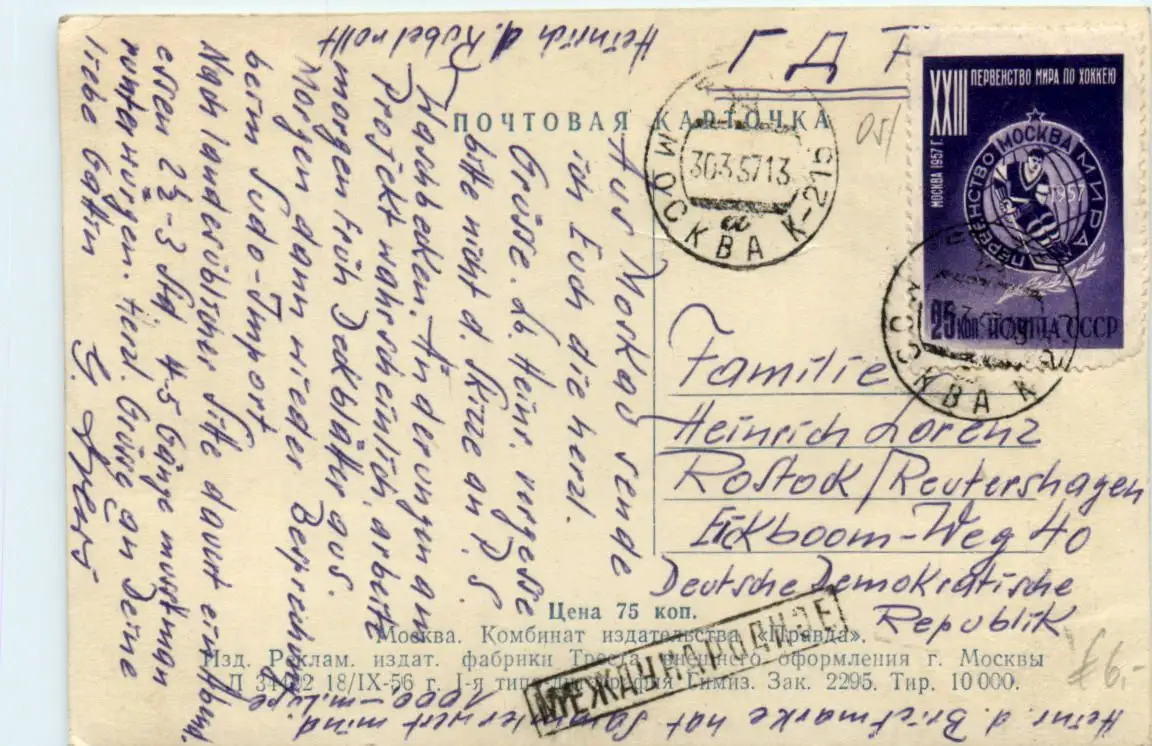 ПОЧТОВАЯ КАРТОЧКА
ГДР
XXIII ПЕРВЕНСТВО МИРА ПО ХОККЕЮ
МОСКВА 1957 Г.
ПЕРВЕНСТВО МОСКВА МИРА
1957
25 коп. ПОЧТА СССР
МОСКВА К-215
3035713
а
МОСКВА К
05/
Aus Moskau sende
ich Euch die herzl.
Grüsse. Lb. Heinr. vergesse
bitte nicht d. Skizze an P.S.
Waschbecken. Änderungen am
Projekt wahrscheinlich, arbeite
morgen früh Deckblätter aus.
Morgen dann wieder Besprechung
beim Sudo-Import
Nach landesüblicher Sitte dauert ein Abend-
essen 2½-3 Std. 4-5 Gänge muss man
runterwürgen. Herzl. Grüsse an Deine
liebe Gattin
Heinrich d.
Familie
Heinrich Lorenz
Rostock/Reutershagen
Eickboom-Weg 40
Deutsche Demokratische
Republik
МЕЖДУНАРОДНОЕ
£6,-
Цена 75 коп.
Москва. Комбинат издательства «Правда».
Изд. Реклам. издат. фабрики Треста внешнего оформления г. Москвы
Л 34422 18/IX-56 г. 1-я типо-литография Гимиз. Зак. 2295. Тир. 10 000.
Heinr. d. Briefmarke hat Sammlerwert mind.